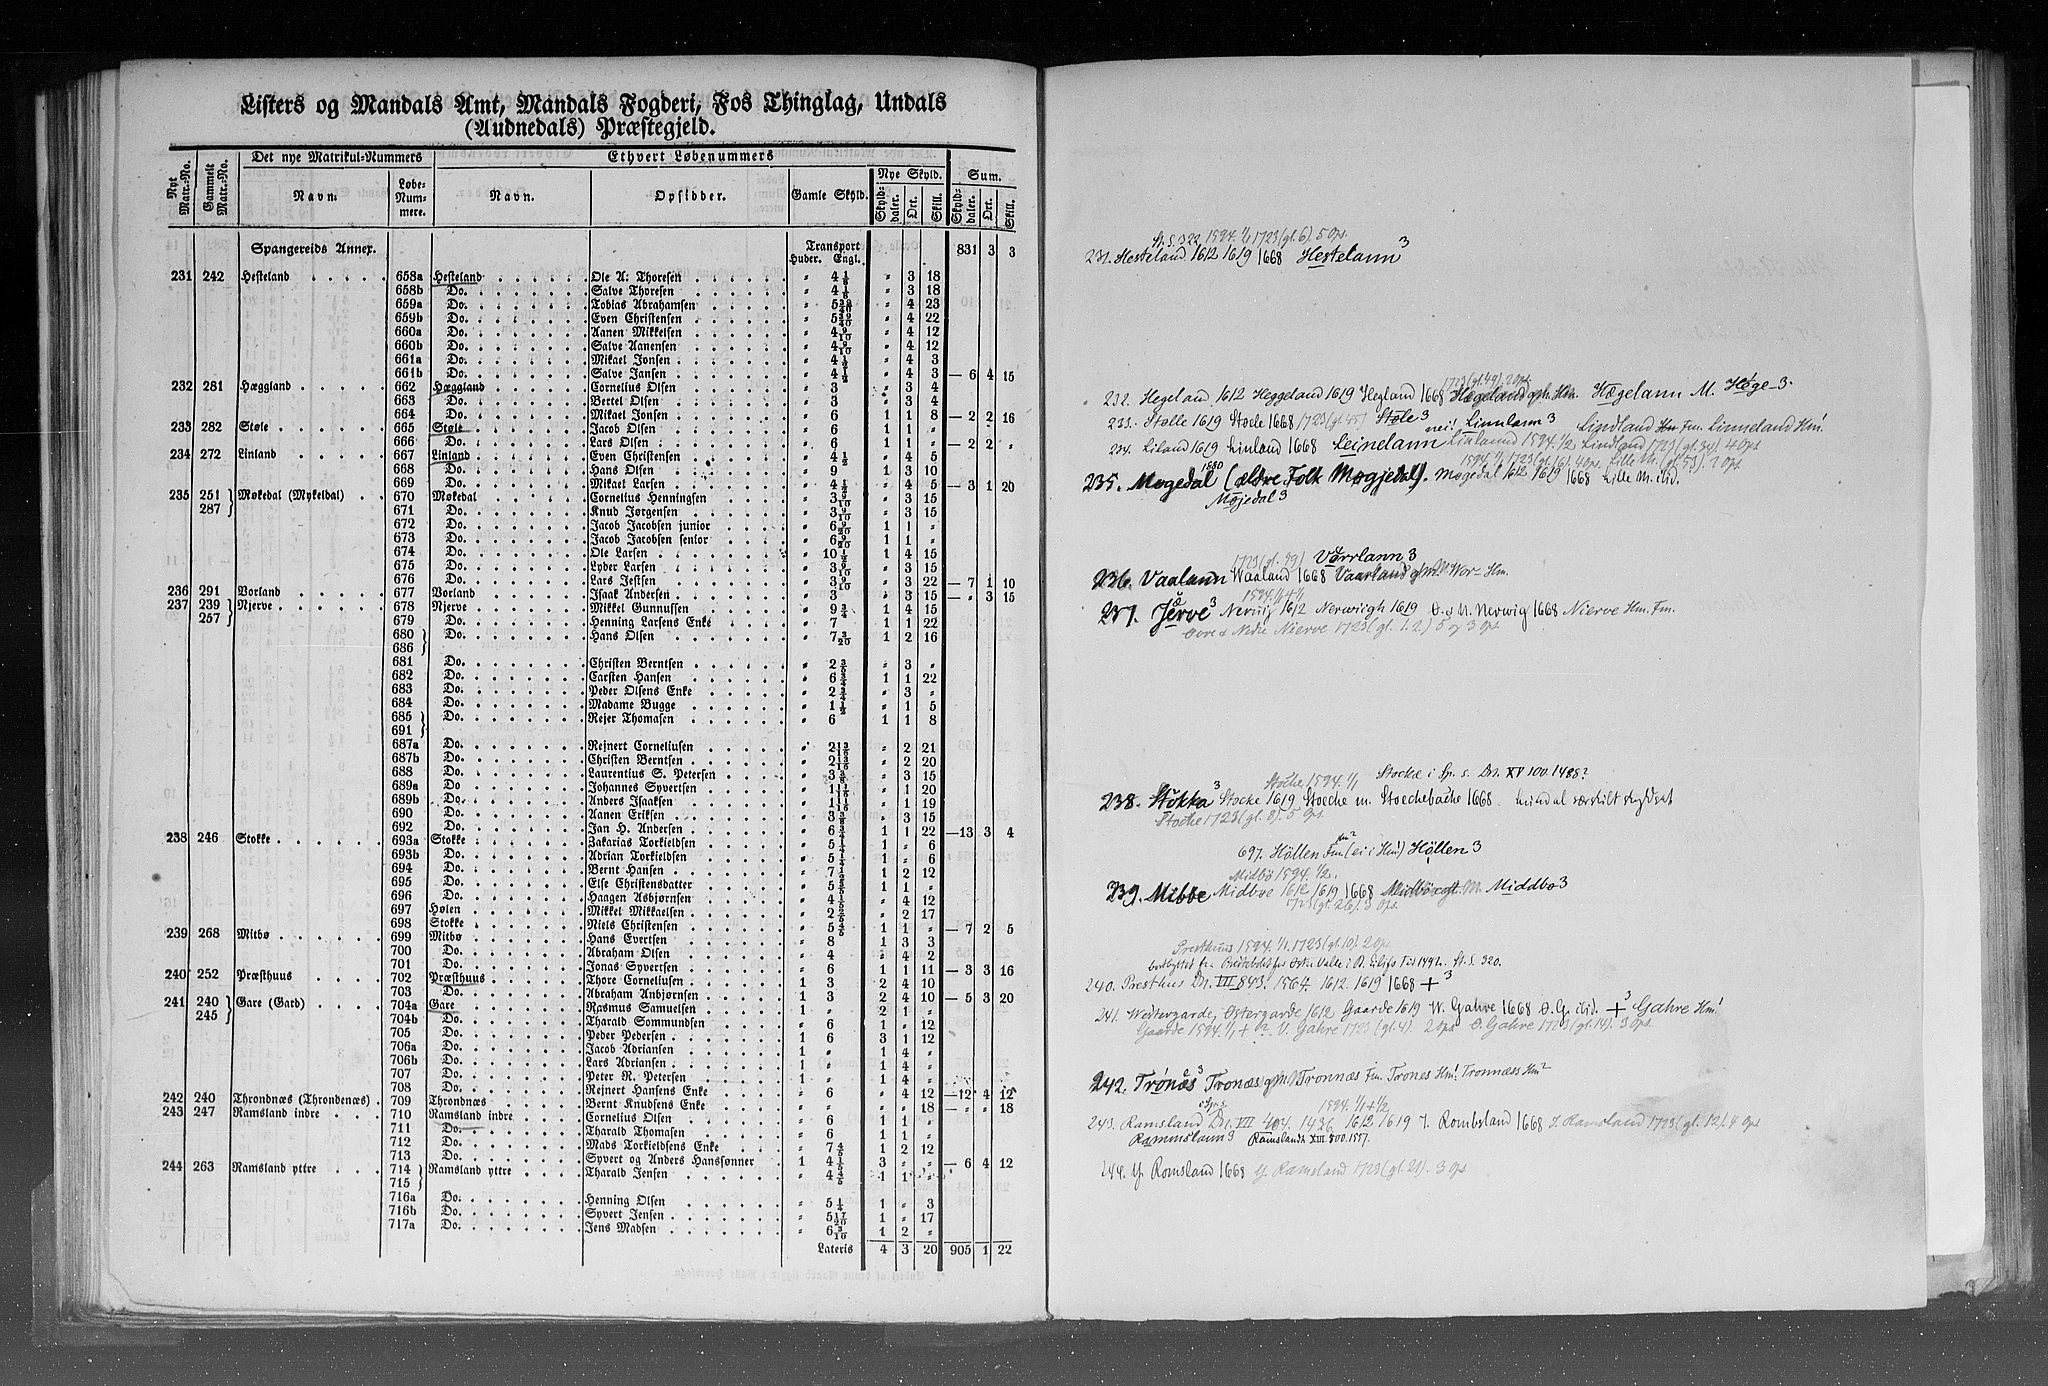 Listers og Mandals Amt, Mandals Fogderi, Fos Thinglag, Undals
(Audnedals) Præstegjeld.
Nyt Matr.-No. Gammelt Matr.-No. Det nye Matrikul-Nummers Ethvert Løbenummers
Navn. Løbe-Nummere. Navn. Opsidder. Gamle Skyld. Nye Skyld. Sum.
Skylddaler. Ort. Skill. Skylddaler. Ort. Skill.
Spangereids Annex. Transport 831 3 3
Huder. Engl.
231 242 Hesteland 658a Hesteland Ole A. Thoresen " 4 1/8 " 3 18
658b Do. Salve Thoresen " 4 1/8 " 3 18
659a Do. Tobias Abrahamsen " 5 39/40 " 4 23
659b Do. Even Christensen " 5 39/40 " 4 22
660a Do. Aanen Mikkelsen " 4 9/10 " 4 12
660b Do. Salve Aanensen " 4 9/10 " 4 12
661a Do. Mikael Jonsen " 4 1/2 " 4 3
661b Do. Salve Jansen " 4 1/2 " 4 3 — 6 4 15
232 281 Hæggland 662 Hæggland Cornelius Olsen " 3 " 3 4
663 Do. Bertel Olsen " 3 " 3 4
664 Do. Mikael Jonsen " 6 1 1 8 — 2 2 16
233 282 Støle 665 Støle Jacob Olsen " 6 1 1 "
666 Do. Lars Olsen " 6 1 1 " — 2 2 "
234 272 Linland 667 Linland Even Christensen " 4 1/2 " 4 5
668 Do. Hans Olsen " 9 1 3 10
669 Do. Mikael Larsen " 4 1/2 " 4 5 — 3 1 20
235 251 } Møkedal (Mykeldal) 670 Møkedal Cornelius Henningsen " 3 9/10 " 3 15
287 } 671 Do. Knud Jørgensen " 3 9/10 " 3 15
672 Do. Jacob Jacobsen junior " 6 9/20 1 1 "
673 Do. Jacob Jacobsen senior " 6 9/20 1 1 "
674 Do. Ole Larsen " 10 1/2 1 4 15
675 Do. Lyder Larsen " 3 9/10 " 3 15
676 Do. Lars Jestsen " 3 9/10 " 3 22 — 7 1 10
236 291 Vorland 677 Vorland Isaak Andersen " 3 " 3 15 — " 3 15
237 239 } Njerve 678 Njerve Mikkel Gunnufsen " 9 3/4 1 4 15
257 } 679 Do. Henning Larsens Enke " 7 1 1 22
680 } Do. Hans Olsen " 7 3/20 1 2 16
686 }
681 Do. Christen Berntsen " 2 3/5 " 3 "
682 Do. Carsten Hansen " 6 3/4 1 1 22
683 Do. Peder Olsens Enke " 2 3/4 " 3 "
684 Do. Madame Bugge " 1 1/2 " 1 5
685 } Do. Rejer Thomasen " 6 1 1 8
691 }
687a Do. Rejnert Corneliusen " 2 13/16 " 2 21
687b Do. Christen Berntsen " 2 13/16 " 2 20
688 Do. Laurentius S. Petersen " 3 3/8 " 3 15
689a Do. Johannes Syvertsen " 1 11/16 " 1 20
689b Do. Anders Isaaksen " 1 11/16 " 1 19
690 Do. Aanen Eriksen " 3 3/8 " 3 15
692 Do. Jan H. Andersen " 6 3/4 1 1 22 —13 3 4
238 246 Stokke 693a Stokke Zakarias Torkieldsen " 5 1/4 1 " 6
693b Do. Adrian Torkieldsen " 5 1/4 1 " 6
694 Do. Bernt Hansen " 7 1/2 1 2 12
695 Do. Else Christensdatter " 5 1 1 "
696 Do. Haagen Asbjørnsen " 4 " 4 12
697 Hølen Mikkel Mikkaelsen " 2 " 2 17
698 Stokke Niels Christensen " 5 4/5 1 1 " — 7 2 5
239 268 Mitbø 699 Mitbø Hans Evertsen " 8 1 3 3
700 Do. Abraham Olsen " 4 " 4 2
701 Do. Jonas Syvertsen " 6 1 1 11 — 3 3 16
240 252 Præsthuus 702 Præsthuus Thore Corneliusen 1 3 2 4 10
703 Do. Abraham Anbjørnsen 1 3 2 4 10 — 5 3 20
241 240 } Gare (Gard) 704a Gare Rasmus Samuelsen 1 " 2 1 "
245 } 704b Do. Tharald Sommundsen " 6 1 " 12
705 Do. Peder Pedersen 1 6 3 1 12
706a Do. Jacob Adriansen 1 " 1 4 "
706b Do. Lars Adriansen 1 " 1 4 "
707 Do. Peter N. Petersen 1 " 1 4 "
708 Do. Rejnert Hansens Enke " 6 " 4 12 —12 4 12
242 240 Throndnæs (Throndenæs) 709 Throndnæs Bernt Knudsens Enke " " " " 18 — " " 18
243 247 Ramsland indre 710 Ramsland indre Cornelius Olsen " 6 1 1 "
711 Do. Tharald Thomasen " 6 1 1 "
712 Do. Mads Torkieldsens Enke " 7 4/5 1 2 12
713 Do. Syvert og Anders Hanssønner 1 4 1/5 3 " " — 6 4 12
244 263 Ramsland yttre 714 } Ramsland yttre Tharald Jensen " 4 4/5 1 1 "
715 }
716a Do. Henning Olsen " 5 1/4 1 " 3
716b Do. Syvert Jensen " 5 17/20 1 " 17
717a Do. Jens Madsen " 6 3/10 1 2 "
Lateris 4 3 20 905 1 22
St. S. 322 1594. 1/1 1723 (gl. 6). 5 Ops.
231. Hesteland 1612 1619 1668 Hestelann 3
1723 (gl. 49). 2 ops.
232. Hegeland 1612 Heggeland 1619 Hegland 1668 Hægeland Hm. Hægelann M. Høge-3.
233. Stølle 1619 Støle 1668 1723 (gl. 45) Støle 3 nei! Linnlann 3 Lindland Fm. Linneland Hm!
234. Liland 1619 Linland 1668 Leinelann Linland 1594. 1/2. Lindland 1723 (gl. 34) 4 Ops
1594. 1/1 1723 (gl. 16). 4 ops. Lille M. (gl. 53). 2 Ops.
235. Møgedal (ældre Folk Møgjedal). Møgedal 1612 1619 1668 Lille M. ibid.
Møjedal 3
1723 (gl. 99) Vørrlann 3
236. Vaalann Waaland 1668 Vaarland Wor- Hm.
1594. 1/1 4/1
237. Jerve 3 Neruig 1612 Nerwiigh 1619 Ø. & N. Nerwig 1668 Nierve Hm. Fm.
Øvre & Nedre Nierve 1723 (gl. 1. 2.) 5 og 3 Ops.
Stöche 1594. 1/1 Stocke i Sp. s. DN. XV 100. 1488?
238. Støkka 3 Stocke 1619 Stoeche m. Stoechebache 1668. Mindal særskilt skyldsat
Stoche 1723 (gl. 8). 5 Ops.
697. Höllen Fm. (ei i Hm!) Høllen 3
Midbö 1594. 1/2.
239. Mibbe Midboe 1612 1619 1668 Midböe M. Middbø 3
1723 (gl. 26). 3 Ops.
Presthuus 1594. 1/1. 1723 (gl. 10) 2 ops.
St. S. 320.
240. Presthus DN. VII 843. 1564. 1612. 1619 1668 + 3
241. Westergarde, Østergarde 1612 Gaarde 1619 W. Gahre 1668 Ø. G. ibid. + 3 Gahre Hm!
Gaarde 1594. 1/1 + ? V. Gahre 1723 (gl. 4). 2 Ops Ø. Gahre 1723 (gl. 14). 3 Ops.
242. Trónes 3 Tronæs Tronnæs Fm. Trones Hm! Tronnæs Hm²
i Sp. s. 1594. 1/1 + 1/2
243. Ramsland DN. VII 404. 1436 1612 1619 J. Rambsland 1668 J. Ramsland 1723 (gl. 12). 4 Ops
Rammslann 3 Ramslandt XIII 800. 1557.
244. Y. Romsland 1668 Y. Ramsland 1723 (gl. 21). 3 Ops